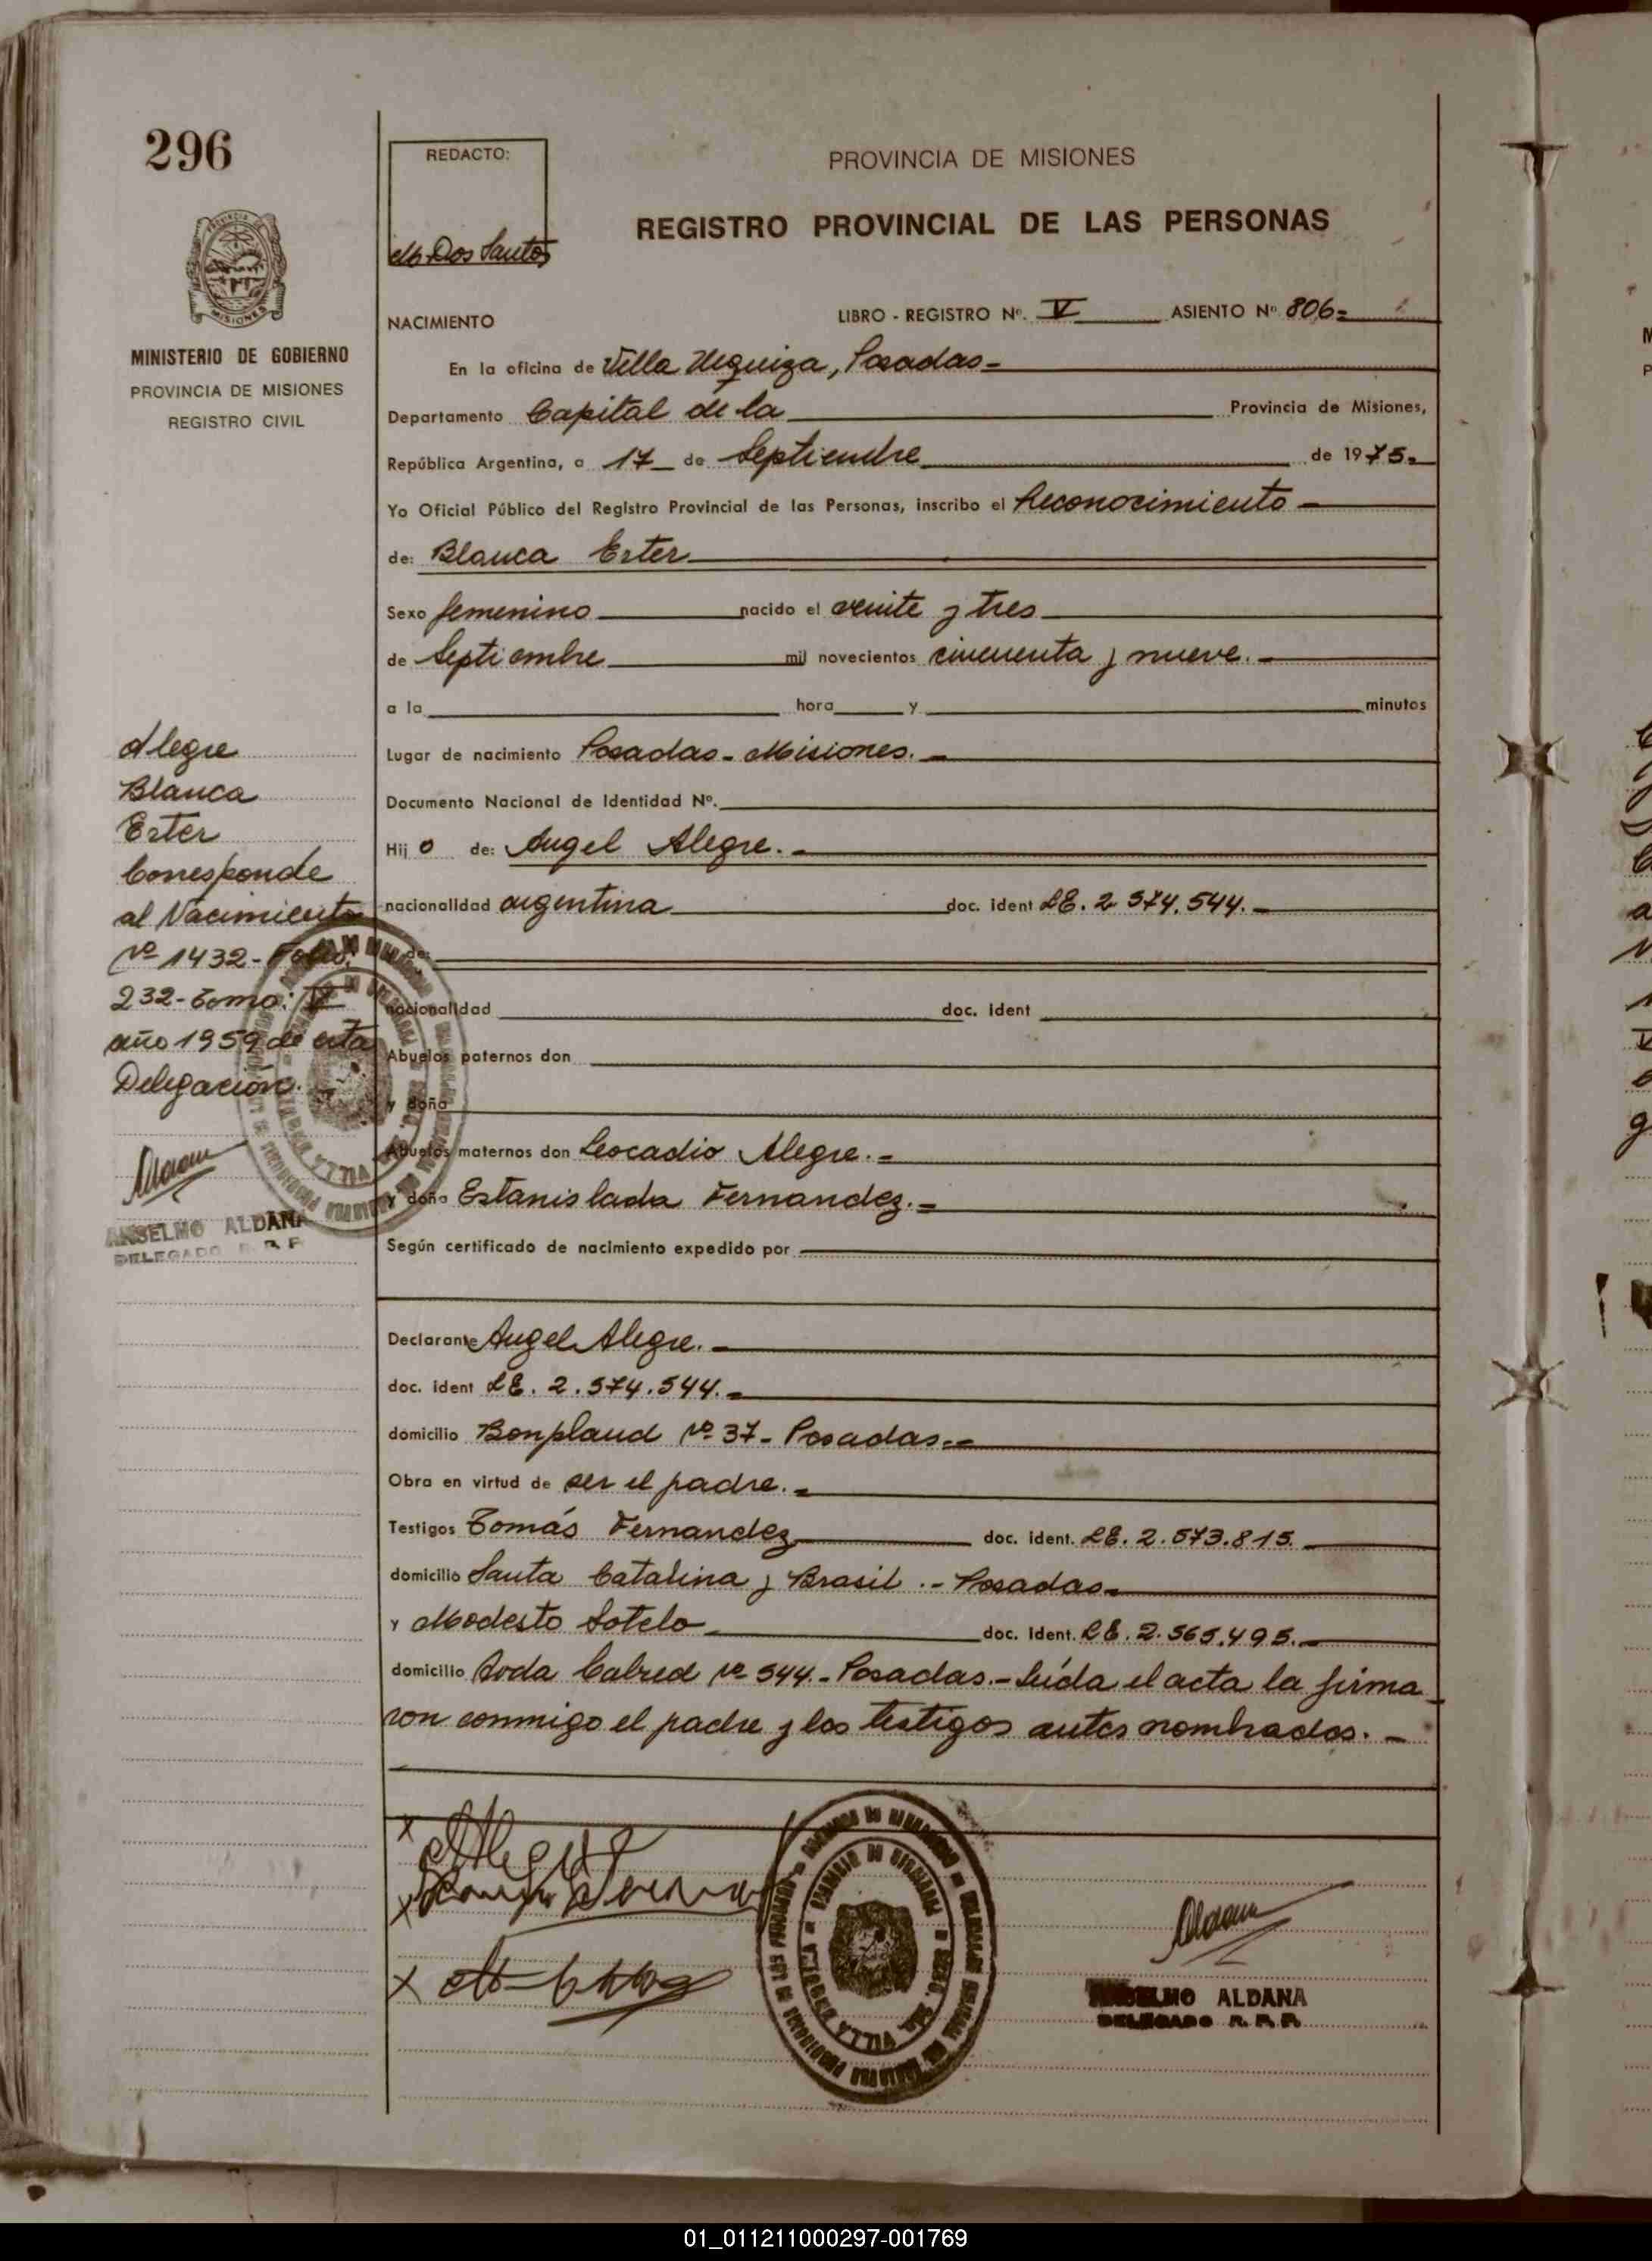 296
REDACTO:
M Dos Santos
PROVINCIA DE MISIONES
REGISTRO PROVINCIAL DE LAS PERSONAS
MINISTERIO DE GOBIERNO
PROVINCIA DE MISIONES
REGISTRO CIVIL
NACIMIENTO
LIBRO - REGISTRO Nº. V ASIENTO Nº 806=
En la oficina de Villa Urquiza, Posadas-
Departamento Capital de la Provincia de Misiones,
República Argentina, a 17 de Septiembre de 1975.
Yo Oficial Público del Registro Provincial de las Personas, inscribo el Reconocimiento -
de: Blanca Ester
Sexo femenino nacido el veinte y tres
de Septiembre mil novecientos cincuenta y nueve. -
a la hora y minutos
Lugar de nacimiento Posadas - Misiones. -
Documento Nacional de Identidad Nº.
Hij o de: Angel Alegre. -
nacionalidad argentina doc. ident LE. 2 574.544. -
de:
nacionalidad doc. ident
Abuelos paternos don
y doña
Abuelos maternos don Leocadio Alegre. =
y doña Estanislada Fernandez. =
Según certificado de nacimiento expedido por
Declarante Angel Alegre. -
doc. ident LE. 2.574.544. -
domicilio Bonpland Nº 37 - Posadas. -
Obra en virtud de ser el padre. -
Testigos Tomás Fernandez doc. ident. LE. 2.573.815.
domicilio Santa Catalina y Brasil .- Posadas -
y Modesto Sotelo doc. ident. LE. 2.565.495. -
domicilio Avda Cabred Nº 544. - Posadas. - Leída el acta la firma
ron conmigo el padre y los testigos antes nombrados. -
Alegre
Blanca
Ester
Corresponde
al Nacimiento
Nº 1432 - Folio:
232 - Tomo:
año 1959 de esta
Delegación. -
Aldana
ANSELMO ALDANA
DELEGADO R. P. P.
x Alegre
x
x
REGISTRO PROVINCIAL DE LAS PERSONAS
VILLA URQUIZA
Aldana
ANSELMO ALDANA
DELEGADO R. P. P.
01_011211000297-001769